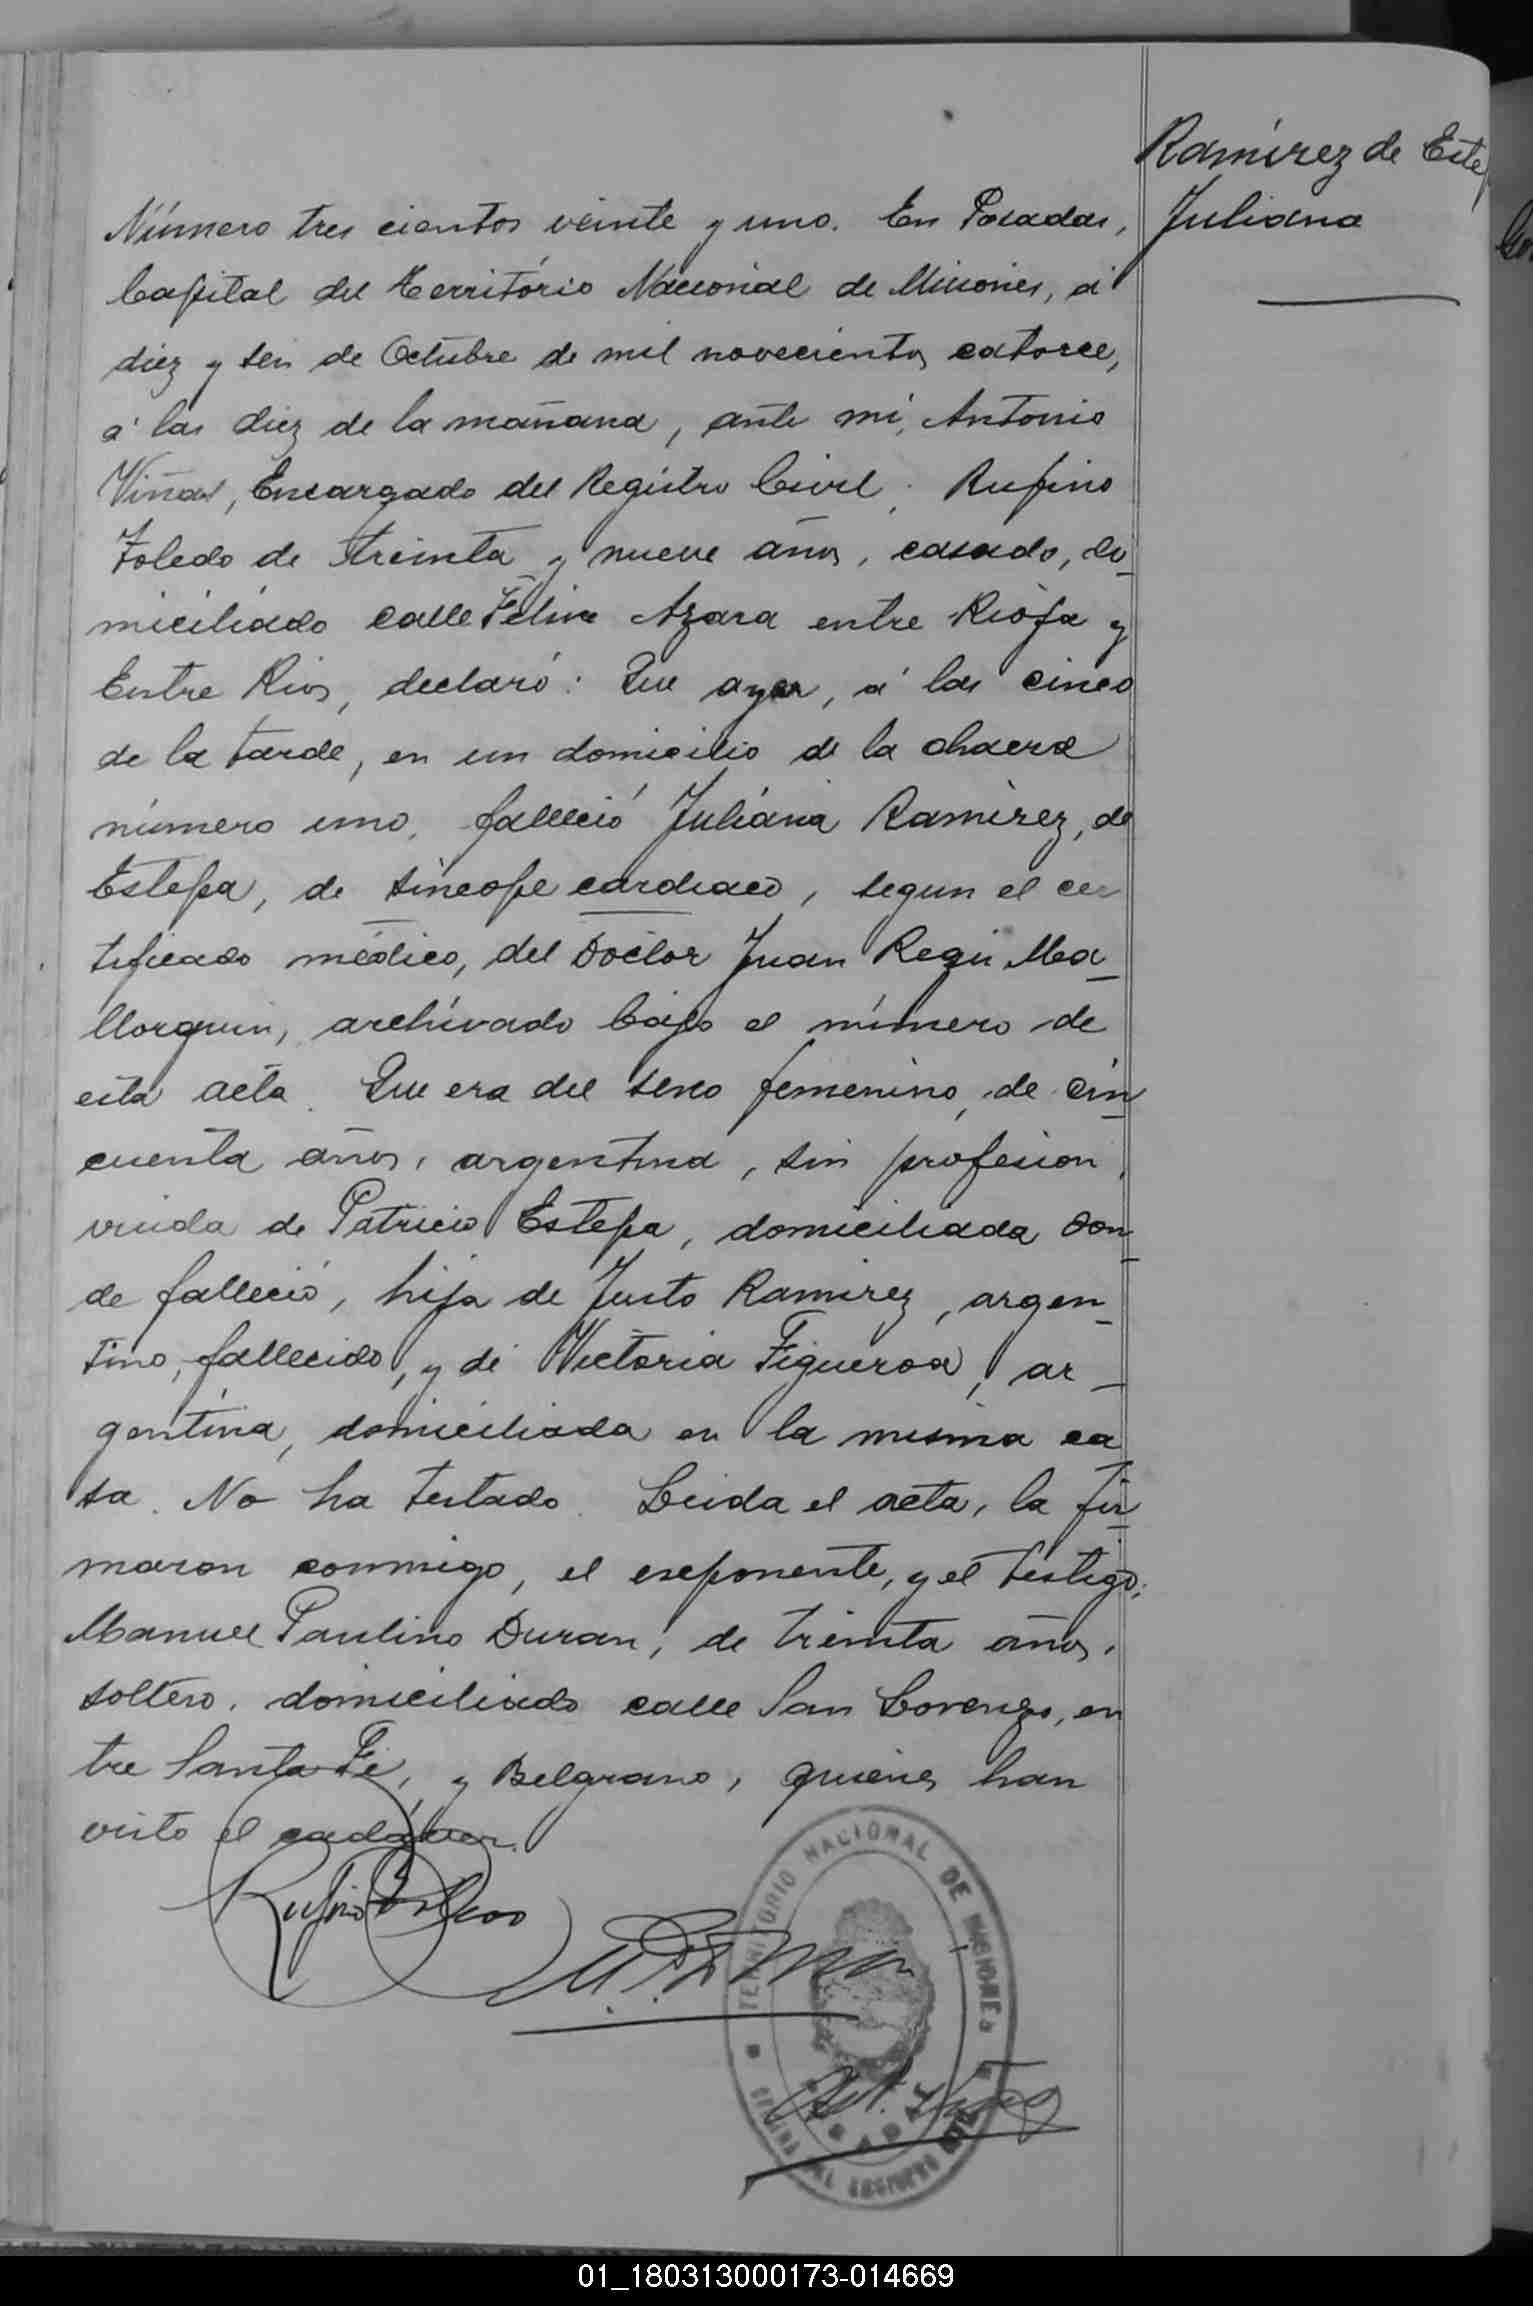 Ramírez de Este
Juliana
Número tres cientos veinte y uno. En Posadas,
Capital del Território Nacional de Misiones, á
diez y seis de Octubre de mil novecientos catorce,
á las diez de la mañana, ante mí, Antonio
Viñas, Encargado del Registro Civil, Rufino
Toledo de treinta y nueve años, casado, do_
miciliado calle Felix Azara entre Rioja y
Entre Rios, declaró: Que ayer, á las cinco
de la tarde, en un domicilio de la chacra
número uno, falleció Juliana Ramírez, de
Estepa, de síncope cardiaco, segun el cer
tificado médico, del Doctor Juan Regis Ma_
llorquin, archivado bajo el número de
esta acta. Que era del sexo femenino, de cin_
cuenta años, argentina, sin profesion,
viuda de Patricio Estepa, domiciliada don_
de falleció, hija de Justo Ramirez, argen_
tino, fallecido, y de Victoria Figueroa, ar_
gentina, domiciliada en la misma ca
sa. No ha testado. Leida el acta, la fir_
maron conmigo, el exponente, y el testigo,
Manuel Paulino Duran, de treinta años,
soltero, domiciliado calle San Lorenzo, en
tre Santa Fé, y Belgrano, quienes han
visto el cadáver.
Rufino Toledo
TERRITORIO NACIONAL DE MISIONES
01_180313000173-014669